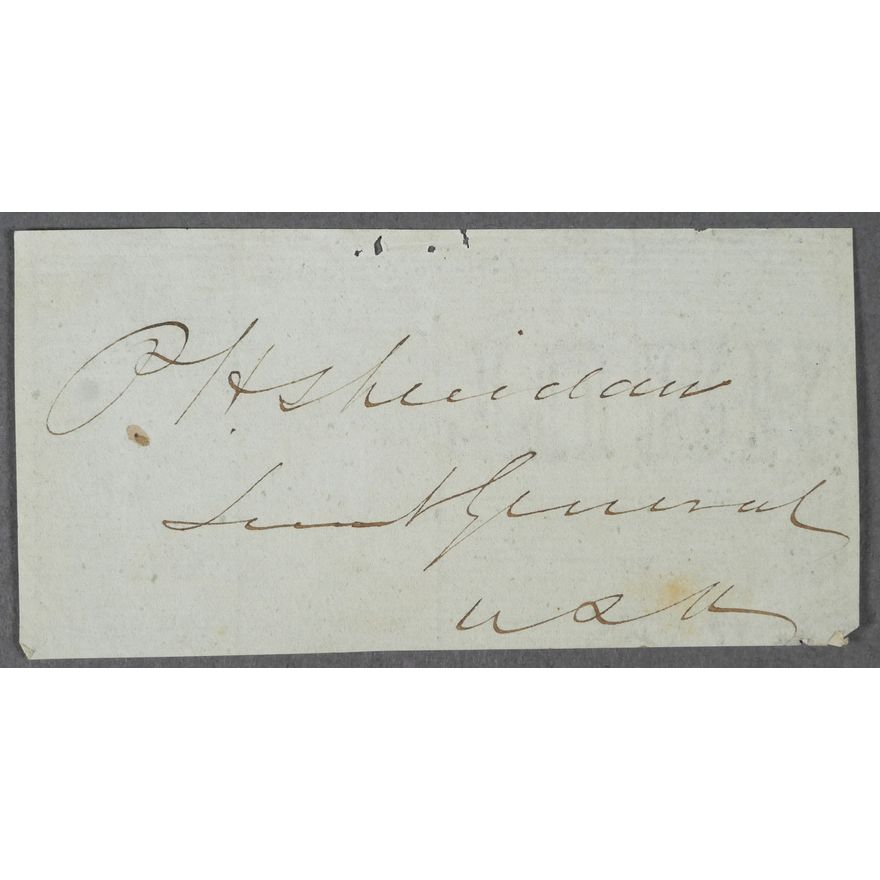 P. H Sheridan
Lieut General
USA